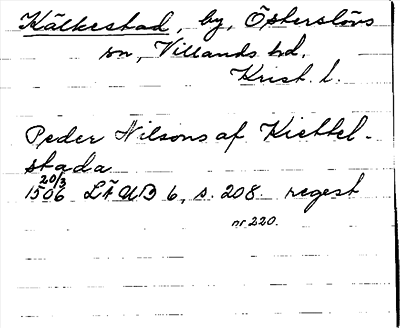 Kälkestad, by, Österslövs
sn, Villands hd.
Krist. l.
Peder Nilsons af Kiettel-
stada
20/3
1506 LÄUB 6, s. 208 regest
nr 220.